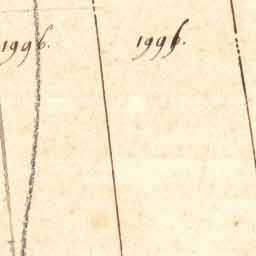 1996.
1996.